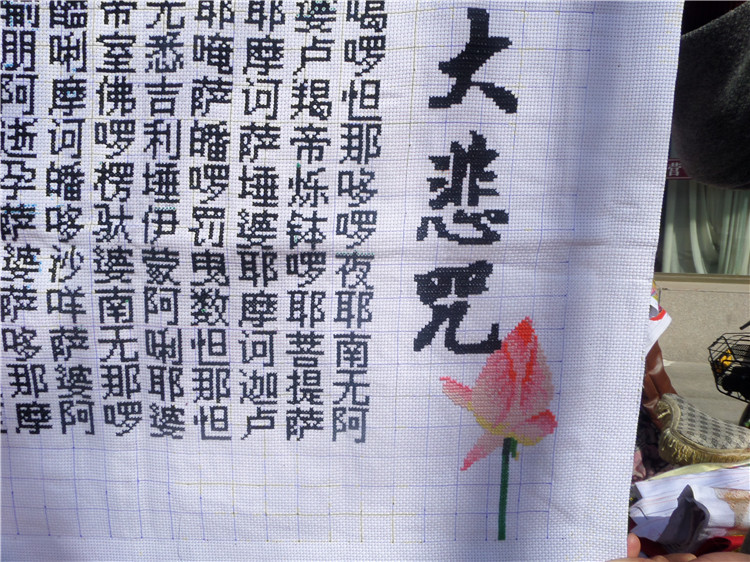 大悲咒
喝啰怛那哆啰夜耶南无阿
婆卢羯帝烁钵啰耶菩提萨
耶摩诃萨埵婆耶摩诃迦卢
耶唵萨皤啰罚曳数怛那怛
无悉吉利埵伊蒙阿唎耶婆
帝室佛啰楞驮婆南无那啰
唎摩诃皤哆沙咩萨婆阿
朋阿逝孕萨婆萨哆那摩